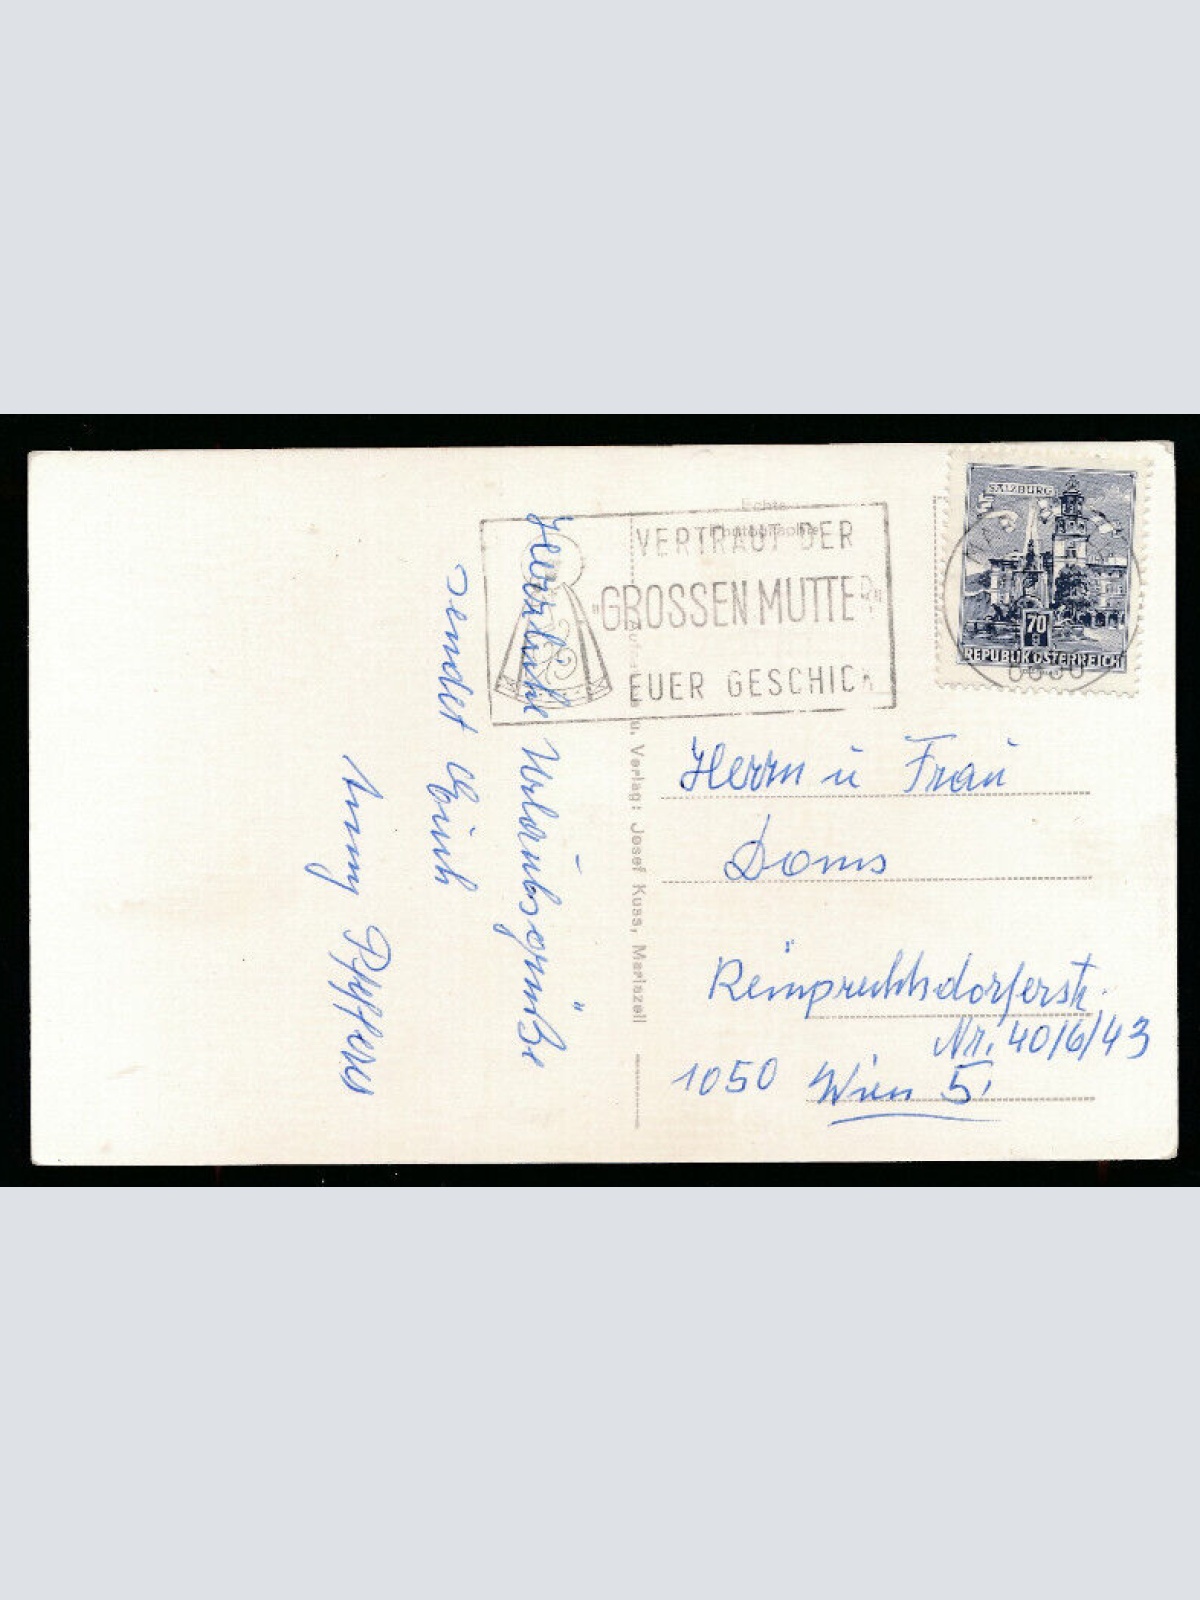 Echte
Photographie
VERTRAUT DER
"GROSSEN MUTTER"
EUER GESCHICK
SALZBURG
70
g
REPUBLIK ÖSTERREICH
8630
Herzliche Urlaubsgrüße
sendet Euch
Anny
Aufnahme u. Verlag: Josef Kuss, Mariazell
Herrn u Frau
Doms
Reinprechtsdorferstr.
Nr. 40/6/43
1050 Wien 5.